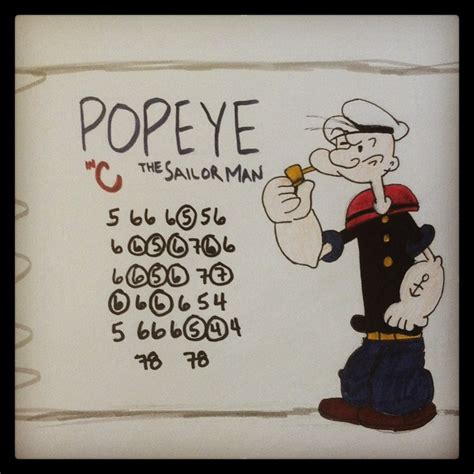 POPEYE
IN C THE SAILOR MAN
5 66 6 5 56
6 6 5 6 7 6 6
6 6 5 6 7 7
6 6 6 6 5 4
5 6 6 6 5 4 4
78 78